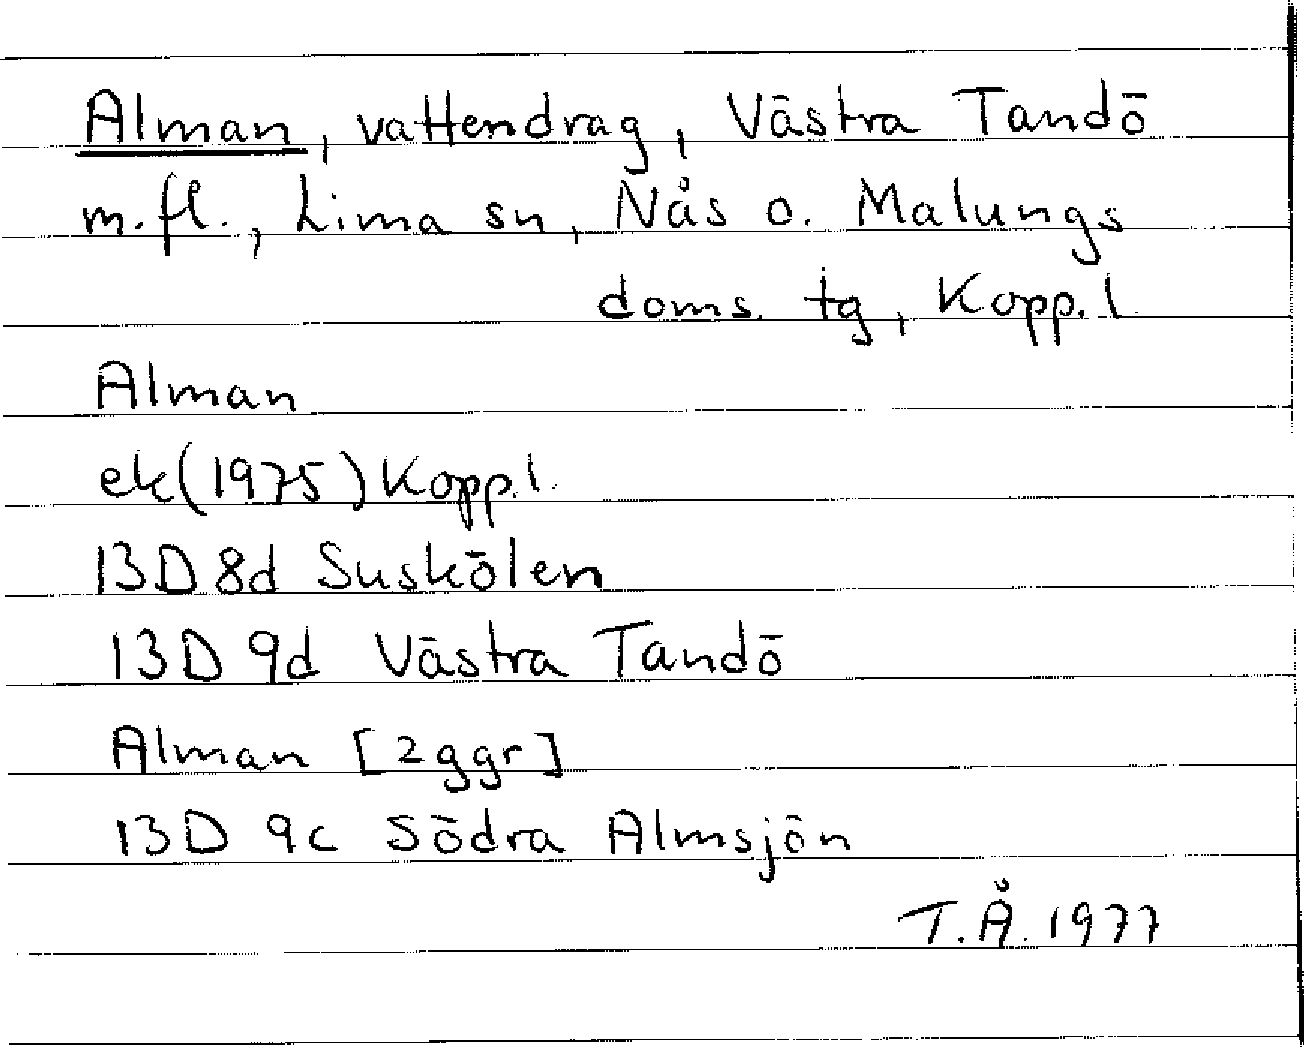 Alman, vattendrag, Västra Tandö
m.fl., Lima sn, Nås o. Malungs
doms. tg, Kopp. l
Alman
ek(1975) Kopp.l.
13D 8d Suskölen
13D 9d Västra Tandö
Alman [2 ggr]
13D 9c Södra Almsjön
T.Å. 1977